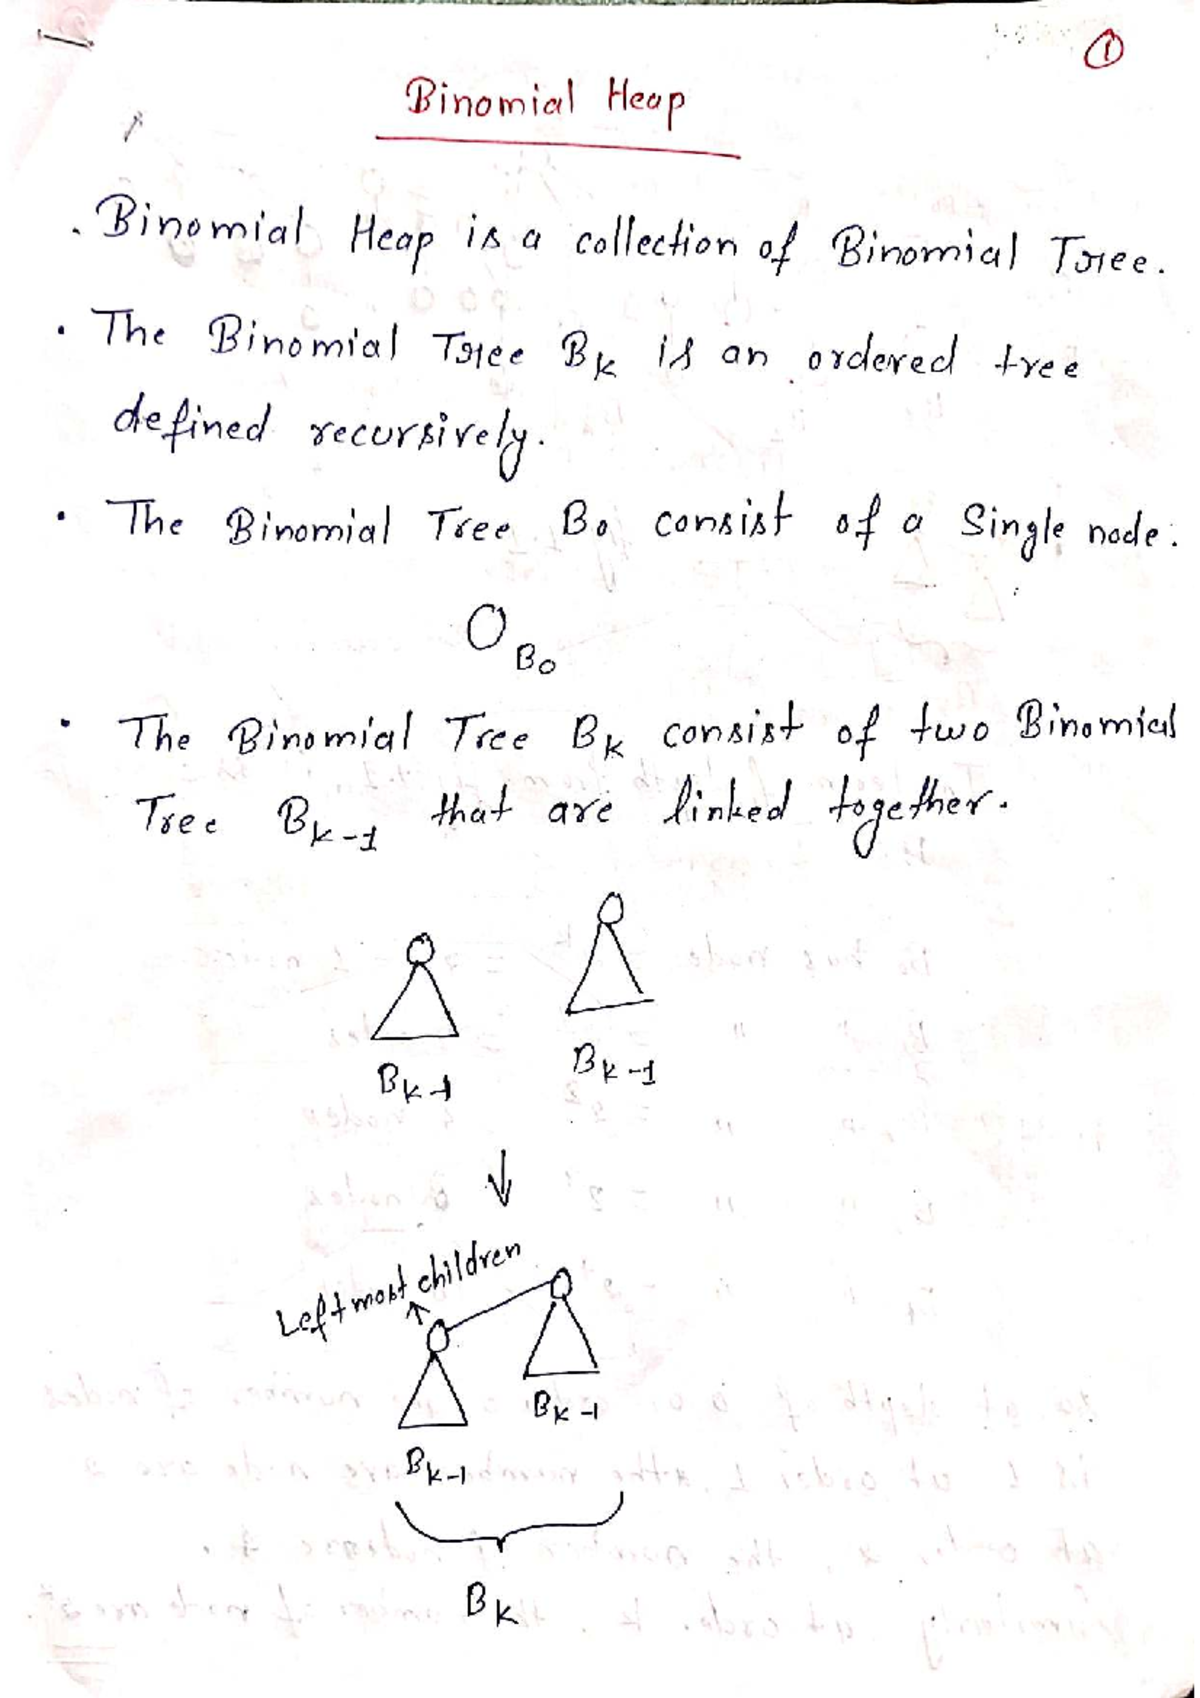 ①
Binomial Heap
. Binomial Heap is a collection of Binomial Tree.
• The Binomial Tree Bk is an ordered tree
defined recursively.
• The Binomial Tree B0 consist of a Single node.
B0
• The Binomial Tree Bk consist of two Binomial
Tree Bk-1 that are linked together.
Bk-1 Bk-1
↓
Leftmost children
Bk-1
Bk-1
Bk